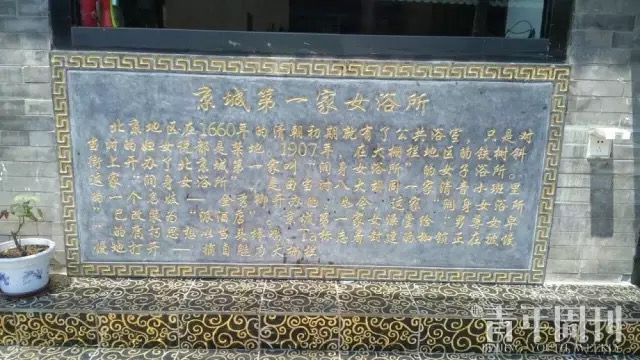 京城第一家女浴所
北京地区在1660年的清朝初期就有了公共浴室，只是对
当时的妇女说都是禁地。1907年，在大栅栏地区的铁树斜
街上开办了北京城第一家叫“润身女浴所”的女子浴所。
这家“润身女浴所”，是由当时八大胡同一家清音小班里
的一个名妓——金秀卿开办的。也今，这家“润身女浴所
”已改装为“派酒店”。京城第一家女澡堂给“男尊女卑
”的腐朽思想以当头棒喝，Ta标志着封建的枷锁正在被缓
缓地打开——摘自魅力大栅栏
青年周刊
BEIJING YOUTH WEEKLY